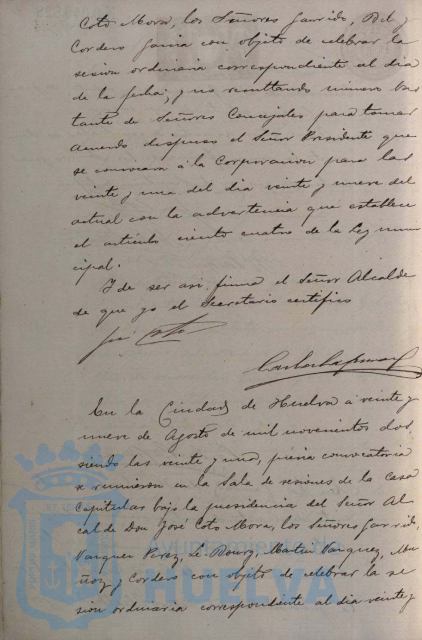 Coto Mora, los Señores Garrido, Bel y
Cordero García con objeto de celebrar la
sesion ordinaria correspondiente al dia
de la fecha, y no resultando número bas
tante de Señores Concejales para tomar
acuerdo dispuso el Señor Presidente que
se convocara á la Corporacion para las
veinte y una del dia veinte y nueve del
actual con la advertencia que establece
el artículo ciento cuatro de la Ley muni
cipal.
Y de ser asi firma el Señor Alcalde
de que yo el Secretario certifico
José Coto
En la Ciudad de Huelva á veinte y
nueve de Agosto de mil novecientos dos,
siendo las veinte y una, prévia convocatoria
se reunieron en la Sala de sesiones de la Casa
Capitular bajo la presidencia del Señor Al
calde Don José Coto Mora, los Señores Garrido,
Vazquez Perez, Le Bourg, Martin Vazquez, Mu
ñoz y Cordero con objeto de celebrar la se
sion ordinaria correspondiente al dia veinte y
Ayuntamiento de
HUELVA